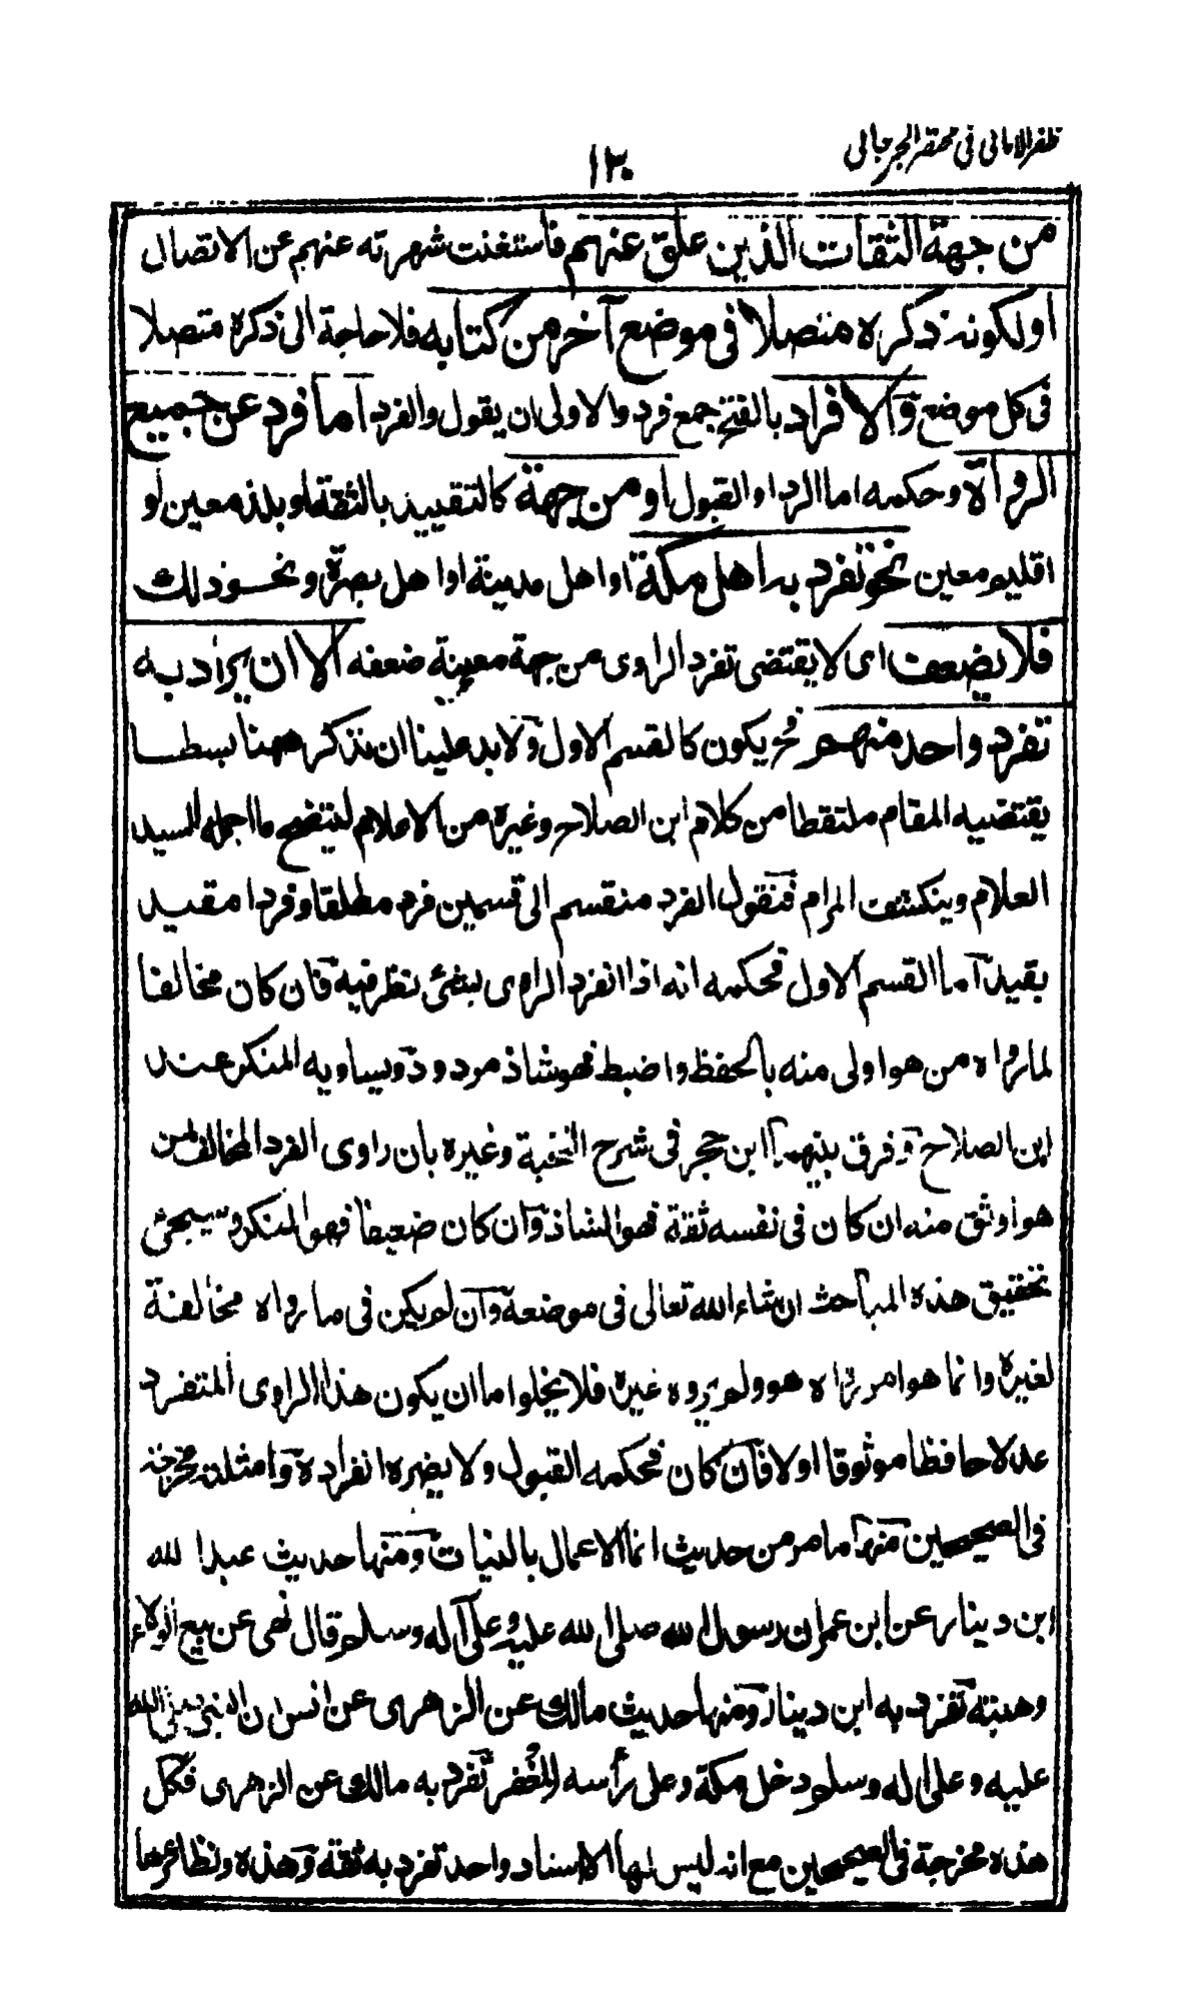 ظفر الامانی فی مختصر الجرجانی
١٣٠
من جهة الثقات الذين علق عنهم فاستغنت شهرته عنهم عن الاتصال
او لكونه ذكره متصلا فى موضع آخر من كتابه فلا حاجة الى ذكره متصلا
فى كل موضع والافراد بالفتح جمع فرد والاولى ان يقول والفرد اما فرد عن جميع
الرواة وحكمه اما الرد او القبول او من جهة كالتقييد بالثقة او بلد معين او
اقليم معين نحو تفرد به اهل مكة او اهل مدينة او اهل بصرة ونحو ذلك
فلا يضعف اى لا يقتضى تفرد الراوى من جهة معينة ضعفه الا ان يراد به
تفرد واحد منهم فح يكون كالقسم الاول ولا بد علينا ان نذكر ههنا بسطا
يقتضيه المقام ملتقطا من كلام ابن الصلاح وغيره من الاعلام ليتضح ما اجمله السيد
العلام وينكشف المرام فنقول الفرد منقسم الى قسمين فرد مطلقا وفردا مقيد
بقيد اما القسم الاول فحكمه انه اذا انفرد الراوى بشئ نظر فيه فان كان مخالفا
لما رواه من هو اولى منه بالحفظ واضبط فهو شاذ مردود ويساويه المنكر عند
ابن الصلاح وفرق بينهما ابن حجر فى شرح النخبة وغيره بان راوى الفرد المخالف لمن
هو اوثق منه ان كان فى نفسه ثقة فهو الشاذ وان كان ضعيفا فهو المنكر وسيجئ
تحقيق هذه المباحث ان شاء الله تعالى فى موضعه وان لم يكن فى ما رواه مخالفة
لغيره وانما هو امر رواه هو ولم يروه غيره فلا يخلو اما ان يكون هذا الراوى المتفرد
عدلا حافظا موثوقا اولا فان كان فحكمه القبول ولا يضره انفراده وامثلته مخرجة
فى الصحيحين منها ما مر من حديث انما الاعمال بالنيات ومنها حديث عبد الله
ابن دينار عن ابن عمر ان رسول الله صلى الله عليه وعلى آله وسلم قال نهى عن بيع الولاء
وهبته تفرد به ابن دينار ومنها حديث مالك عن الزهرى عن انس ان النبى صلى الله
عليه وعلى اله وسلم دخل مكة وعلى رأسه المغفر تفرد به مالك عن الزهرى فكل
هذه مخرجة فى الصحيحين مع انه ليس لها الا اسناد واحد تفرد به ثقة وهذه ونظائرها